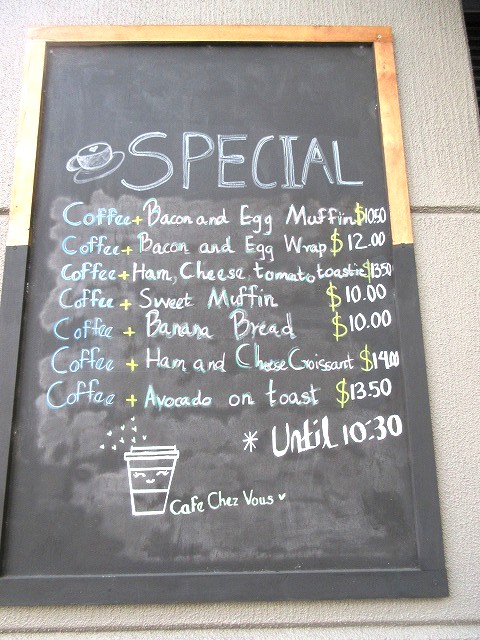 SPECIAL
Coffee + Bacon and Egg Muffin $10.50
Coffee + Bacon and Egg Wrap $12.00
Coffee + Ham, Cheese, tomato toastie $13.50
Coffee + Sweet Muffin $10.00
Coffee + Banana Bread $10.00
Coffee + Ham and Cheese Croissant $14.00
Coffee + Avocado on toast $13.50
* Until 10:30
Cafe Chez Vous